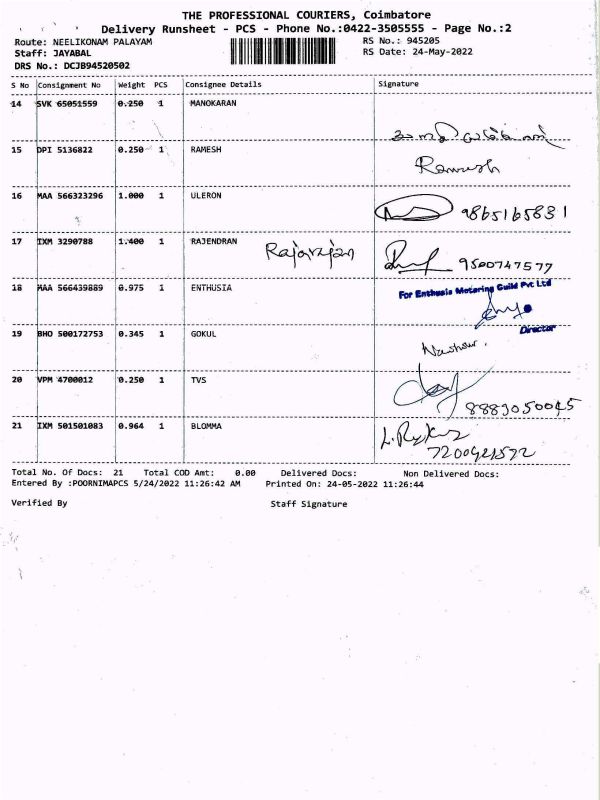 THE PROFESSIONAL COURIERS, Coimbatore
Delivery Runsheet - PCS - Phone No.:0422-3505555 - Page No.:2
Route: NEELIKONAM PALAYAM RS No.: 945205
Staff: JAYABAL RS Date: 24-May-2022
DRS No.: DCJB94520502
S No Consignment No Weight PCS Consignee Details Signature
14 SVK 65051559 0.250 1 MANOKARAN
15 DPI 5136822 0.250 1 RAMESH Ramesh
16 MAA 566323296 1.000 1 ULERON 9865165831
17 IXM 3290788 1.400 1 RAJENDRAN Rajarajan 9500747577
18 MAA 566439889 0.975 1 ENTHUSIA For Enthusia Motoring Guild Pvt Ltd
Director
19 BHO 500172753 0.345 1 GOKUL
20 VPM 4700012 0.250 1 TVS 8883050045
21 IXM 501501083 0.964 1 BLOMMA
Total No. Of Docs: 21 Total COD Amt: 0.00 Delivered Docs: Non Delivered Docs:
Entered By :POORNIMAPCS 5/24/2022 11:26:42 AM Printed On: 24-05-2022 11:26:44
Verified By Staff Signature